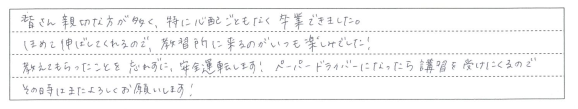 皆さん親切な方が多く、特に心配ごともなく卒業できました。
ほめて伸ばしてくれるので、教習所に来るのがいつも楽しみでした!
教えてもらったことを忘れずに、安全運転します! ペーパードライバーになったら講習を受けにくるので
その時はまたよろしくお願いします!